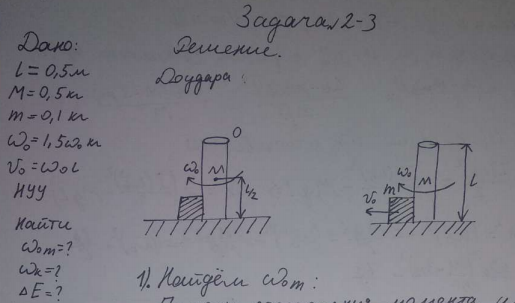 Задача№2-3
Дано:
L = 0,5м
M = 0,5 кг
m = 0,1 кг
ω₀ = 1,5ω₀ кг
v₀ = ω₀ L
НУУ
Найти
ω₀m = ?
ωк = ?
ΔE = ?
Решение.
До удара:
O
ω₀
M
L/2
ω₀
m
M
v₀
L
1). Найдём ω₀m:
момента и